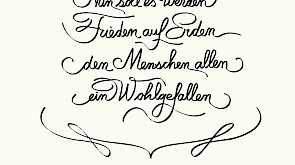 Nun soll es werden
Frieden auf Erden
den Menschen allen
ein Wohlgefallen